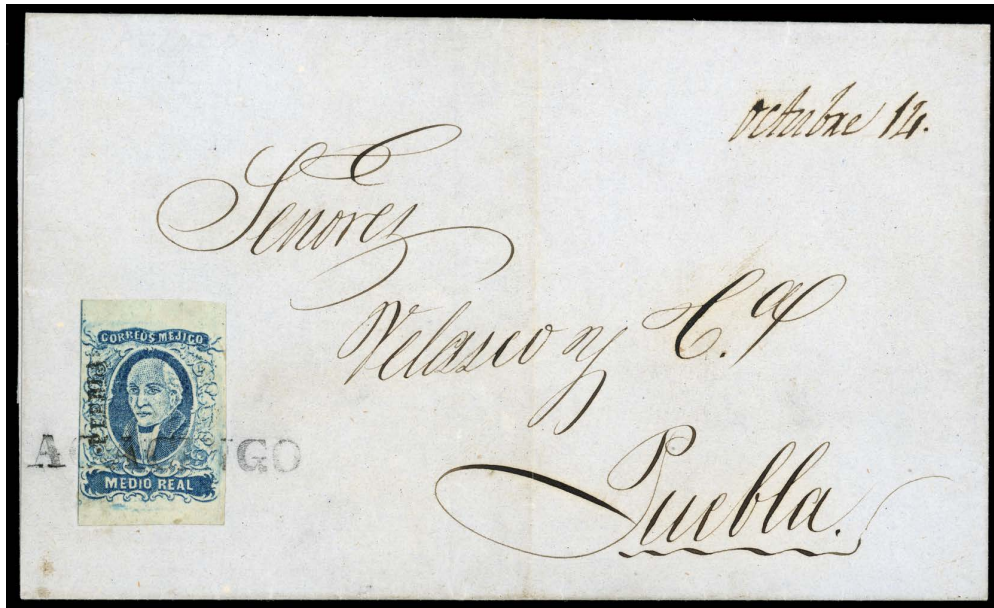 octubre 14.
Señores
Velasco y C.ª
Puebla.
CORREOS MEJICO
MEDIO REAL